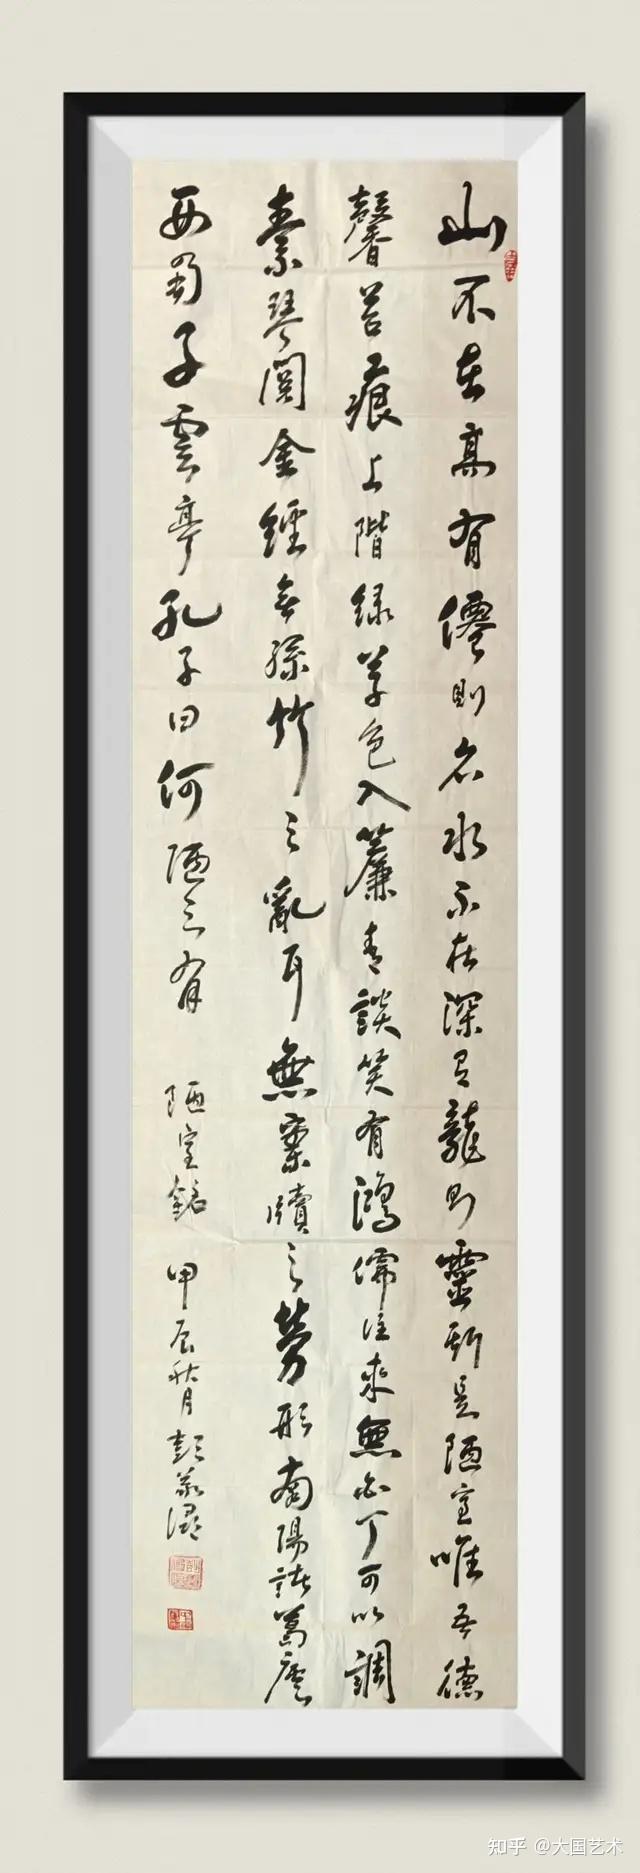 山不在高有僊則名水不在深有龍則靈斯是陋室唯吾德
馨苔痕上階緑草色入簾青談笑有鴻儒往來無白丁可以調
素琴閱金經無絲竹之亂耳無案牘之勞形南陽諸葛廬
西蜀子雲亭孔子曰何陋之有 陋室銘 甲辰秋月彭
知乎 @大国艺术